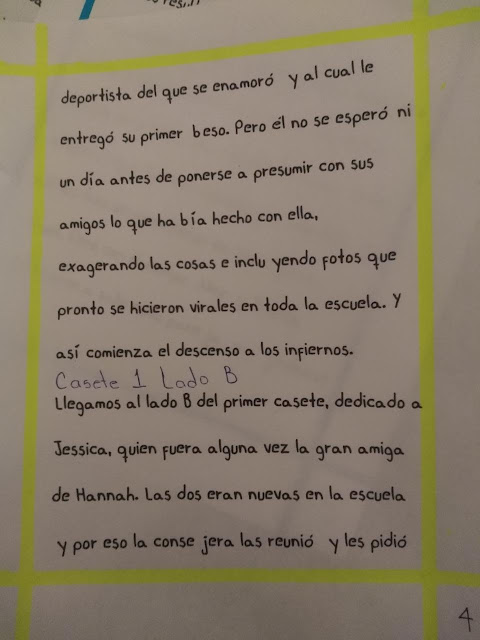 deportista del que se enamoró y al cual le
entregó su primer beso. Pero él no se esperó ni
un día antes de ponerse a presumir con sus
amigos lo que ha bía hecho con ella,
exagerando las cosas e inclu yendo fotos que
pronto se hicieron virales en toda la escuela. Y
así comienza el descenso a los infiernos.
Casete 1 Lado B
Llegamos al lado B del primer casete, dedicado a
Jessica, quien fuera alguna vez la gran amiga
de Hannah. Las dos eran nuevas en la escuela
y por eso la conse jera las reunió y les pidió
4